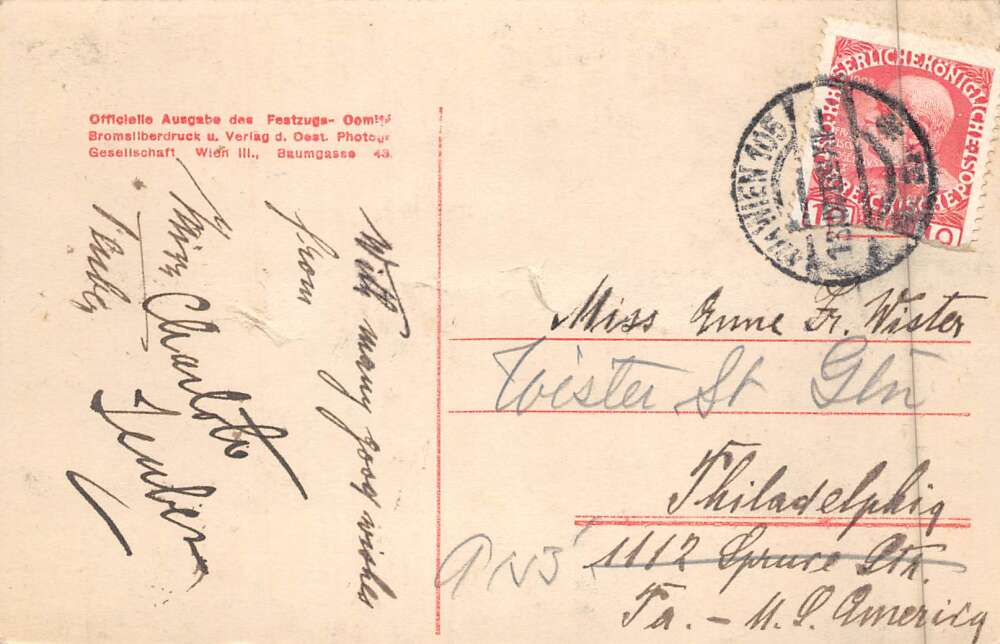 Officielle Ausgabe des Festzugs-Comité
Bromsilberdruck u. Verlag d. Oest. Photogr
Gesellschaft Wien III., Baumgasse 43.
With many goog wishes
from
Charlotte
KAISERLICHEKÖNIGLICHE
1908
WIEN 105
Miss Anne Fr. Wister
Wister St Gtn
Philadelphia
1112 Spruce Str.
Pa. - U. S. America